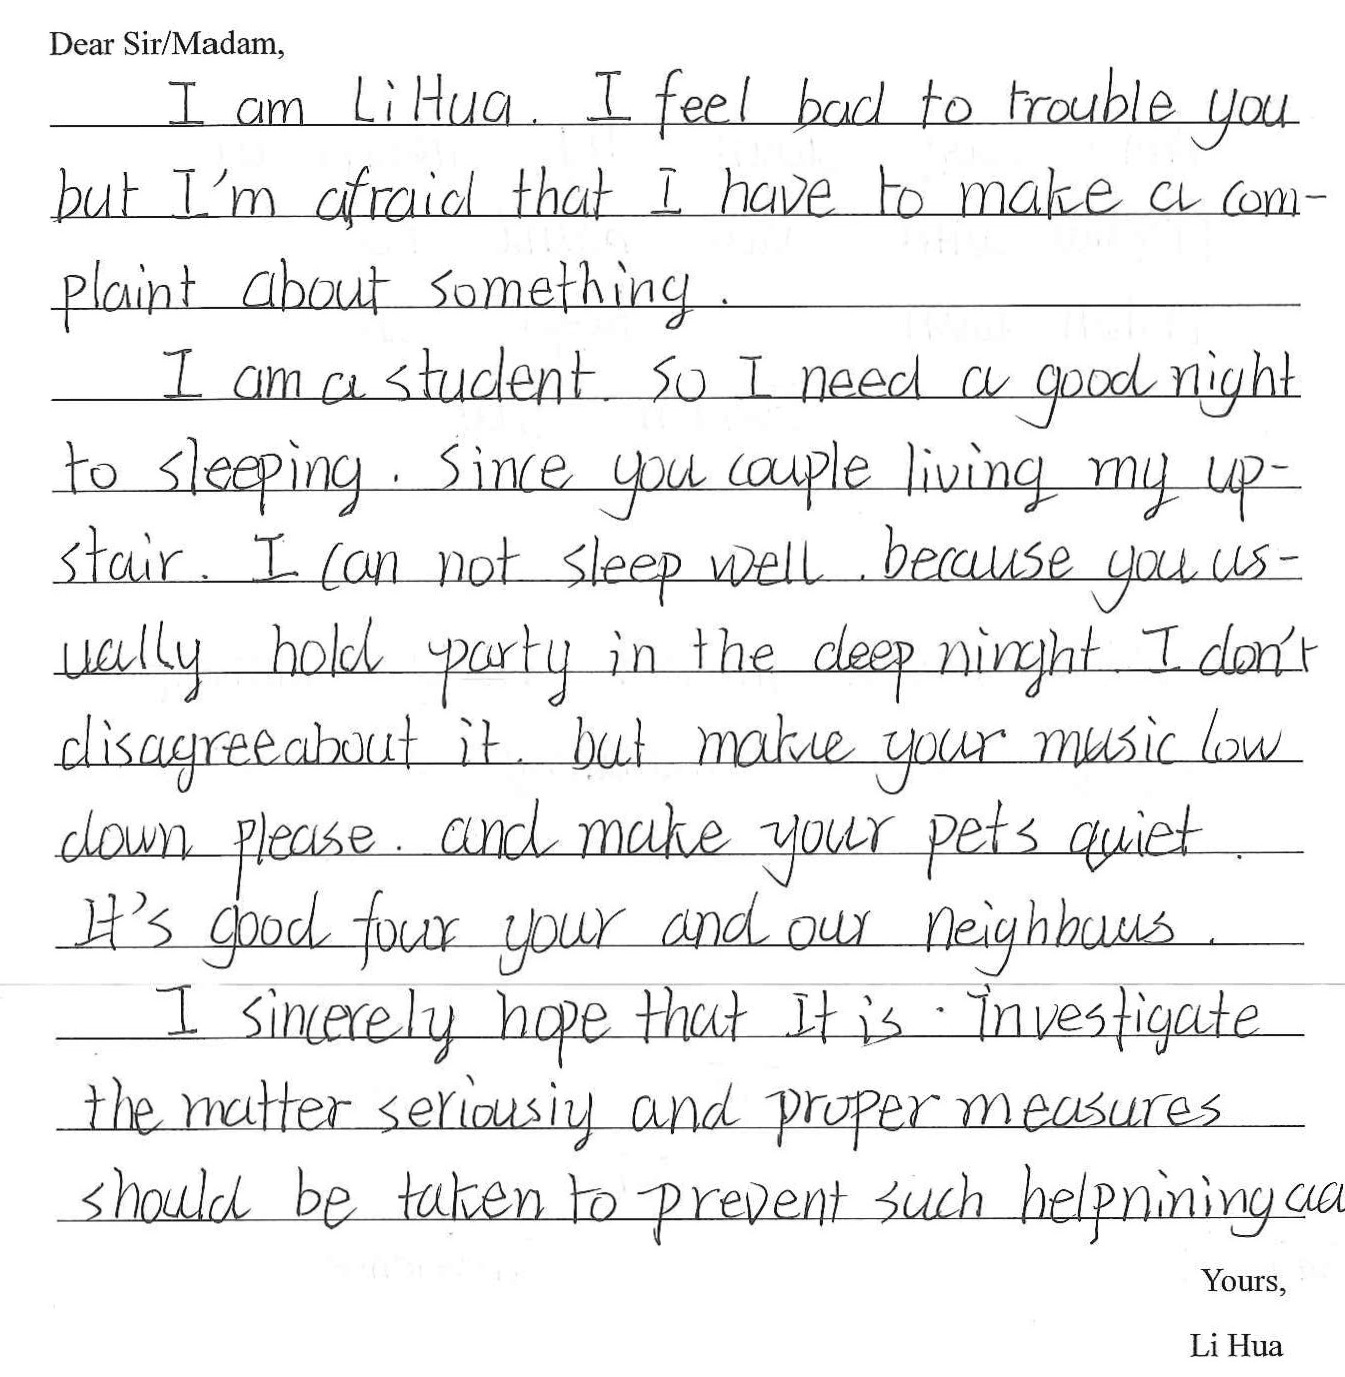 Dear Sir/Madam,
I am Li Hua. I feel bad to trouble you
but I'm afraid that I have to make a com-
plaint about something.
I am a student. so I need a good night
to sleeping. Since you couple living my up-
stair. I can not sleep well. because you us-
ually hold party in the deep ninght. I don't
disagree about it. but make your music low
down please. and make your pets quiet.
It's good four your and our neighbaus.
I sincerely hope that It is. investigate
the matter seriousiy and proper measures
should be taken to prevent such helpnining
Yours,
Li Hua